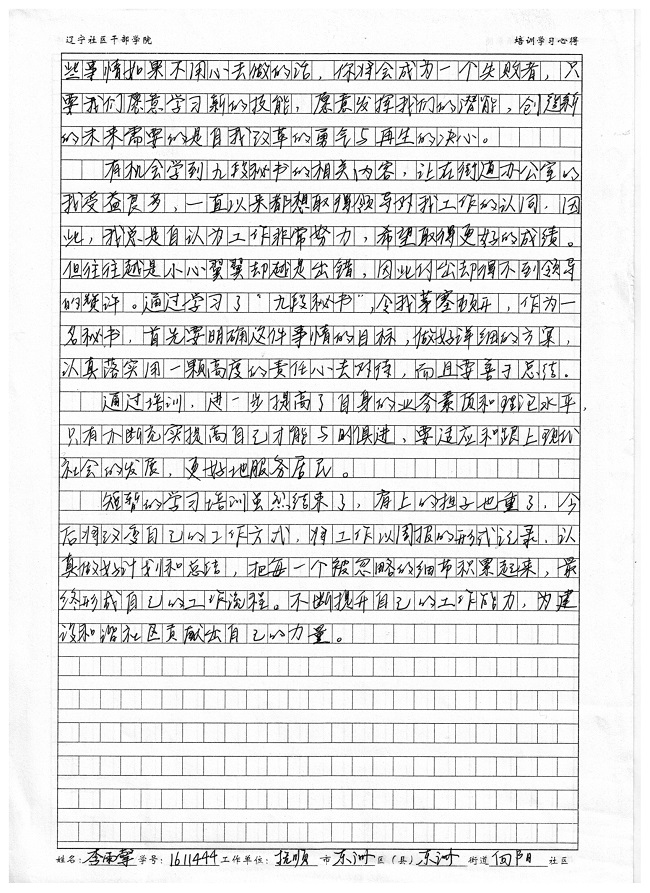 辽宁社区干部学院 培训学习心得
些事情如果不用心去做的话，你将会成为一个失败者，只
要我们愿意学习新的技能，愿意发挥我们的潜能，创造新
的未来需要的是自我改革的勇气与再生的决心。
有机会学到九段秘书的相关内容，让在街道办公室的
我受益良多，一直以来都想取得领导对我工作的认同，因
此，我总是自认为工作非常努力，希望取得更好的成绩。
但往往越是小心翼翼却越是出错，因此付出却得不到领导
的赞许。通过学习了“九段秘书”，令我茅塞顿开，作为一
名秘书，首先要明确这件事情的目标，做好详细的方案，
认真落实用一颗高度的责任心去对待，而且要善于总结。
通过培训，进一步提高了自身的业务素质和理论水平，
只有不断充实提高自己才能与时俱进，要适应和跟上现代
社会的发展，更好地服务居民。
短暂的学习培训虽然结束了，肩上的担子也重了，今
后将改变自己的工作方式，将工作以周报的形式记录，认
真做好计划和总结，把每一个被忽略的细节积累起来，最
终形成自己的工作流程。不断提升自己的工作能力，为建
设和谐社区贡献出自己的力量。
姓名：李 学号：1611444 工作单位：抚顺 市 东洲 区（县）东洲 街道 向阳 社区